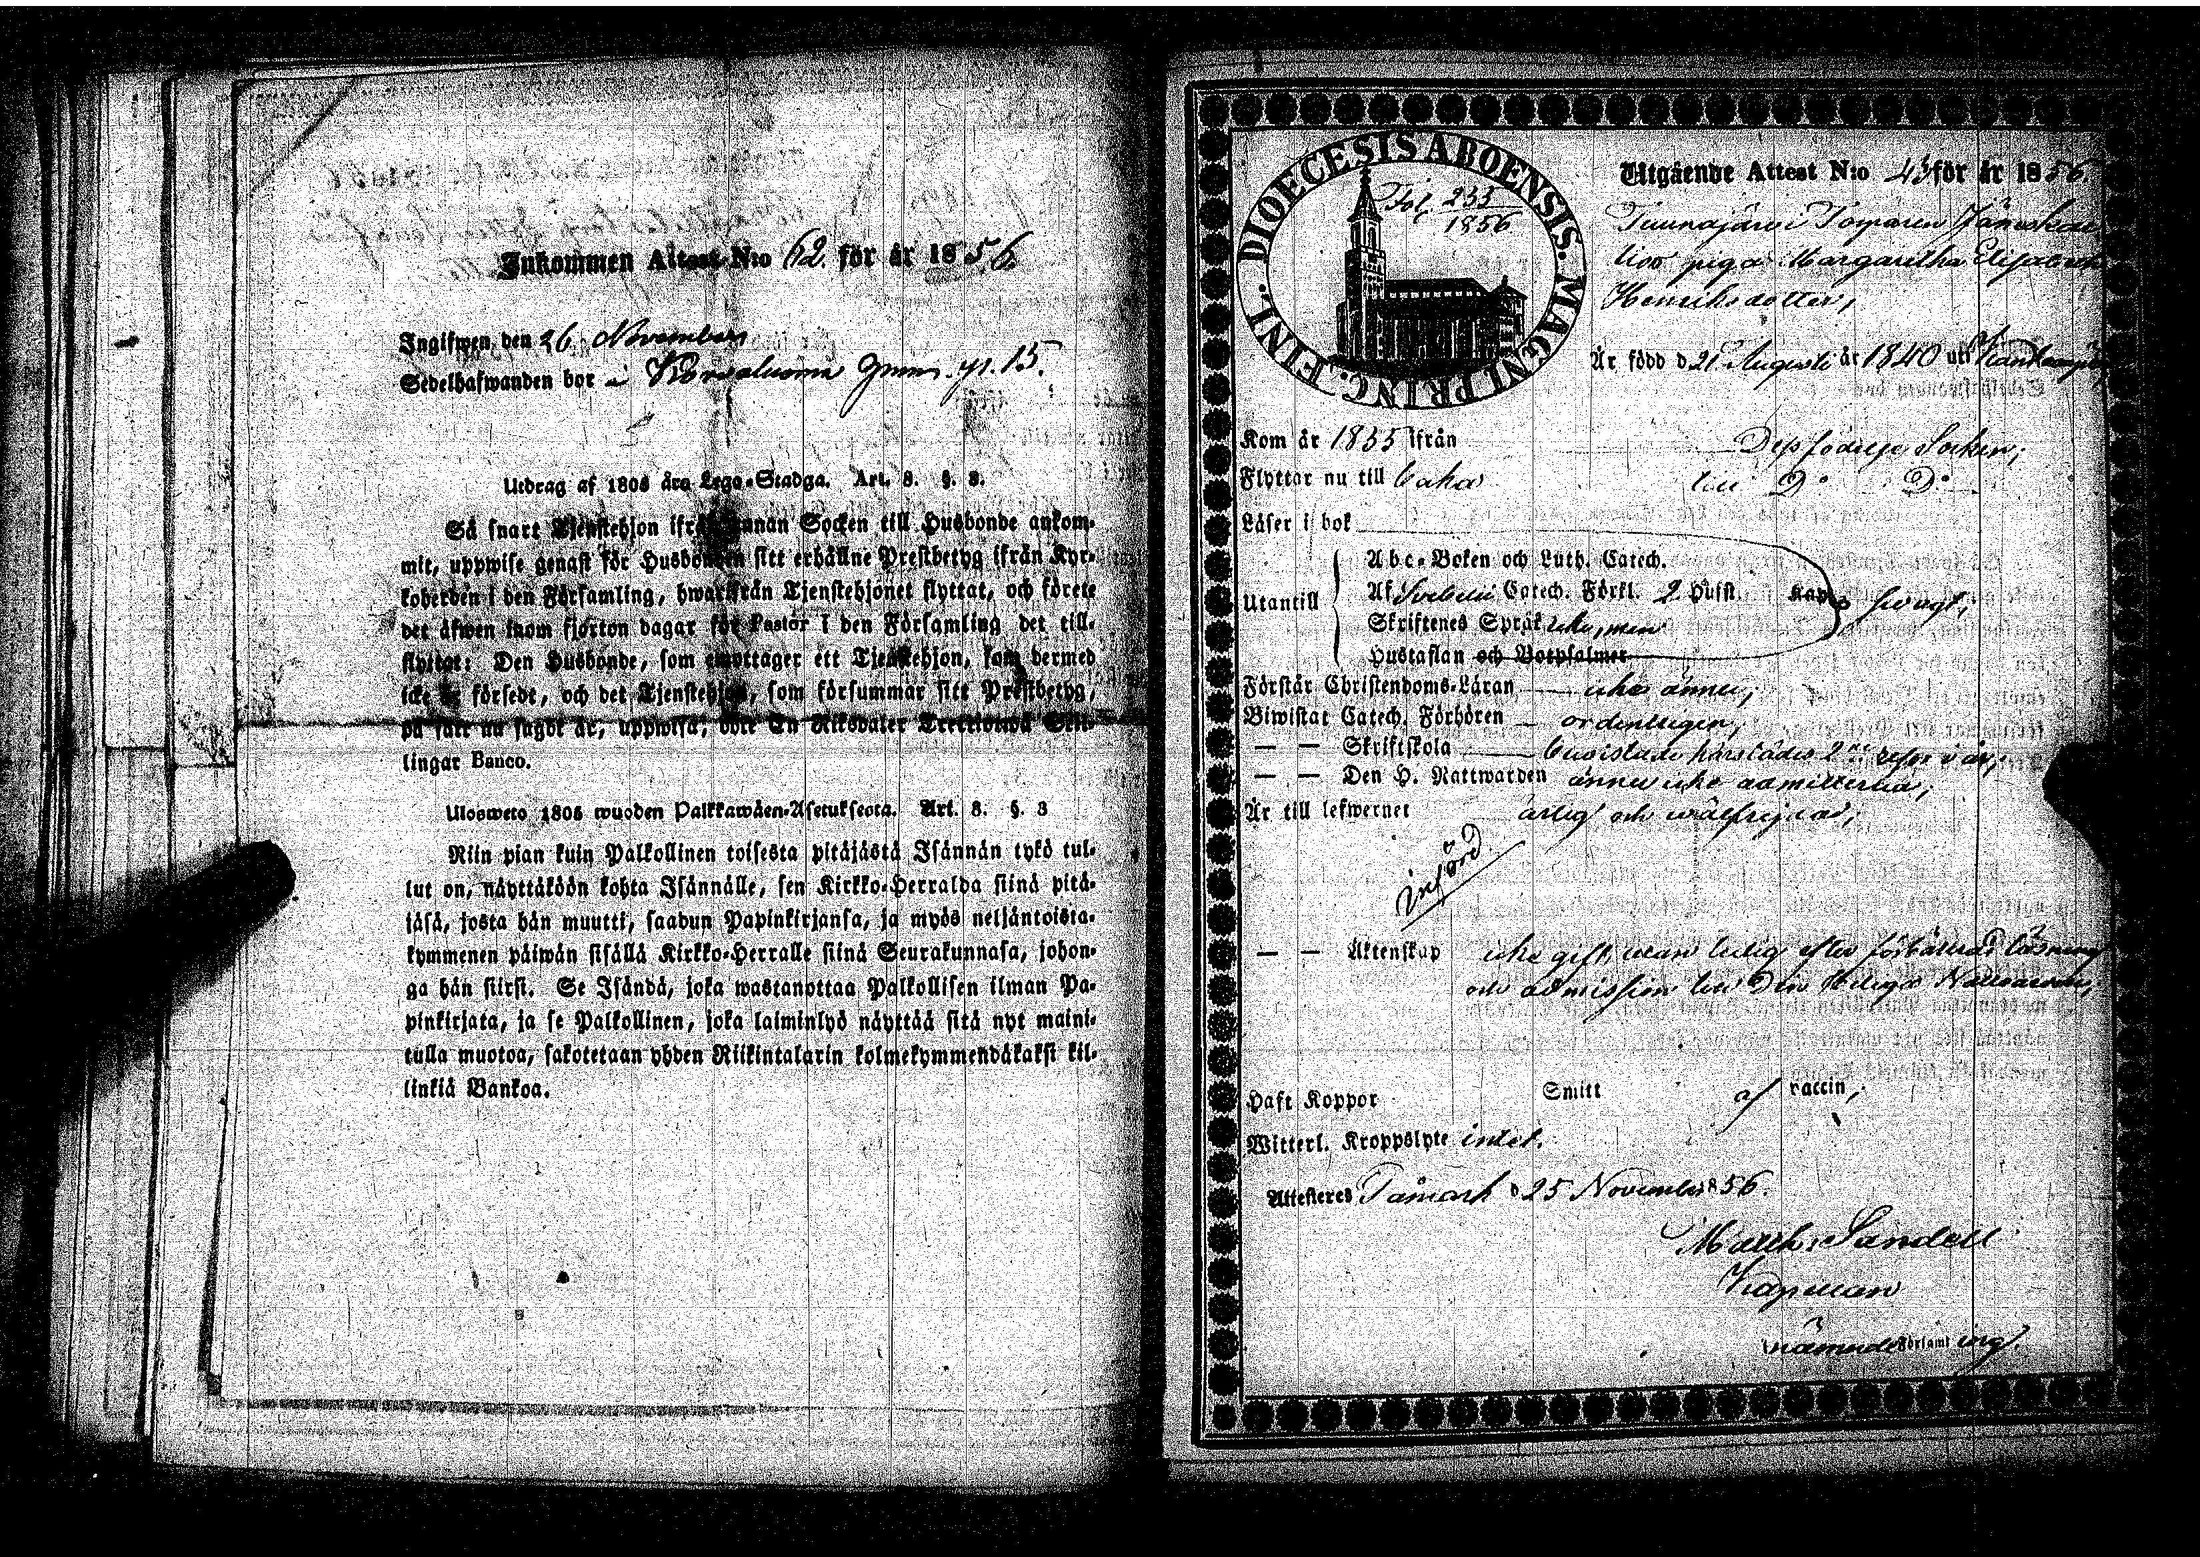 Inkommen Attest N:o 62. för år 1856.
Ingifwen den 26 November
Sedelhafwanden bor i
Utdrag af 1805 års Lego-Stadga. Art. 8. §. 3.
Så snart Tjenstehjon ifrån annan Socken till Husbonde ankom-
mit, uppwise genast för Husbonden sitt erhållne Prestbetyg ifrån Kyr-
koherden i den Församling, hwarifrån Tjenstehjonet flyttat, och förete
det äfwen inom fjorton dagar för Pastor i den Församling det till-
flyttat: Den Husbonde, som emottager ett Tjenstehjon, som dermed
icke är försedt, och det Tjenstehjon, som försummar sitt Prestbetyg,
på sätt nu sagdt är, uppwisa, böte En Riksdaler Trettiotwå Skil-
lingar Banco.
Ulosweto 1805 wuoden Palkkawäen-Asetuksesta. Art. 8. §. 3
Niin pian kuin Palkollinen toisesta pitäjästä Isännän tykö tul-
lut on, näyttäköön kohta Isännälle, sen Kirkko-Herralda siinä pitä-
jäsä, josta hän muutti, saadun Papinkirjansa, ja myös neljäntoista-
kymmenen päiwän sisällä Kirkko-Herralle siinä Seurakunnasa, johon-
ga hän siirsi. Se Isändä, joka wastanottaa Palkollisen ilman Pa-
pinkirjata, ja se Palkollinen, joka laiminlyö näyttää sitä nyt maini-
tulla muotoa, sakotetaan yhden Riikintalarin kolmekymmendäkaksi kil-
linkiä Bankoa.
DIOECESIS ABOENSIS. MAGNI PRINC. FINL.
Fol. 233
1856
Utgående Attest N:o 43 för år 1856.
piga Margaretha Elisabeth
Henriksdotter,
Är född d 21 Augusti år 1840 uti
Kom år 1855 ifrån Dess födelse Socken;
Flyttar nu till baka till D:o D:o
Läser i bok
Utantill
Abc-Boken och Luth. Catech.
Af Svebelii Catech. Förkl. 2 Hufst. Kap. swagt;
Skriftenes Språk icke, men
Hustaflan och Botpsalmer
Förstår Christendoms-Läran icke ännu;
Biwistat Catech. Förhören ordentligen;
— — Skriftskola biwistade härstädes 2ne resor i år;
— — Den H. Nattwarden ännu icke admitterad;
Är till lefwernet ärlig och wälfrejdad;
införd
— — Äktenskap icke gift, utan ledig efter förbättrad läsning
och admission till Den Heliga Nattwarden;
Haft Koppor Smitt af vaccin;
Witterl. Kroppslyte intet.
Attesteras Tamark d 25 November 1856.
Sandell
Kapellan
Församl